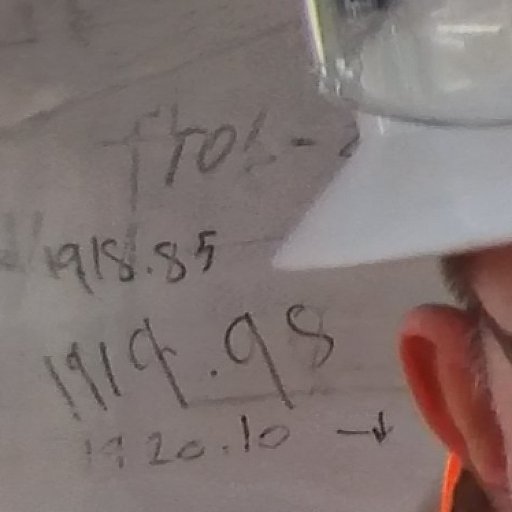 1918.85
1919.98
1920.10 →↓